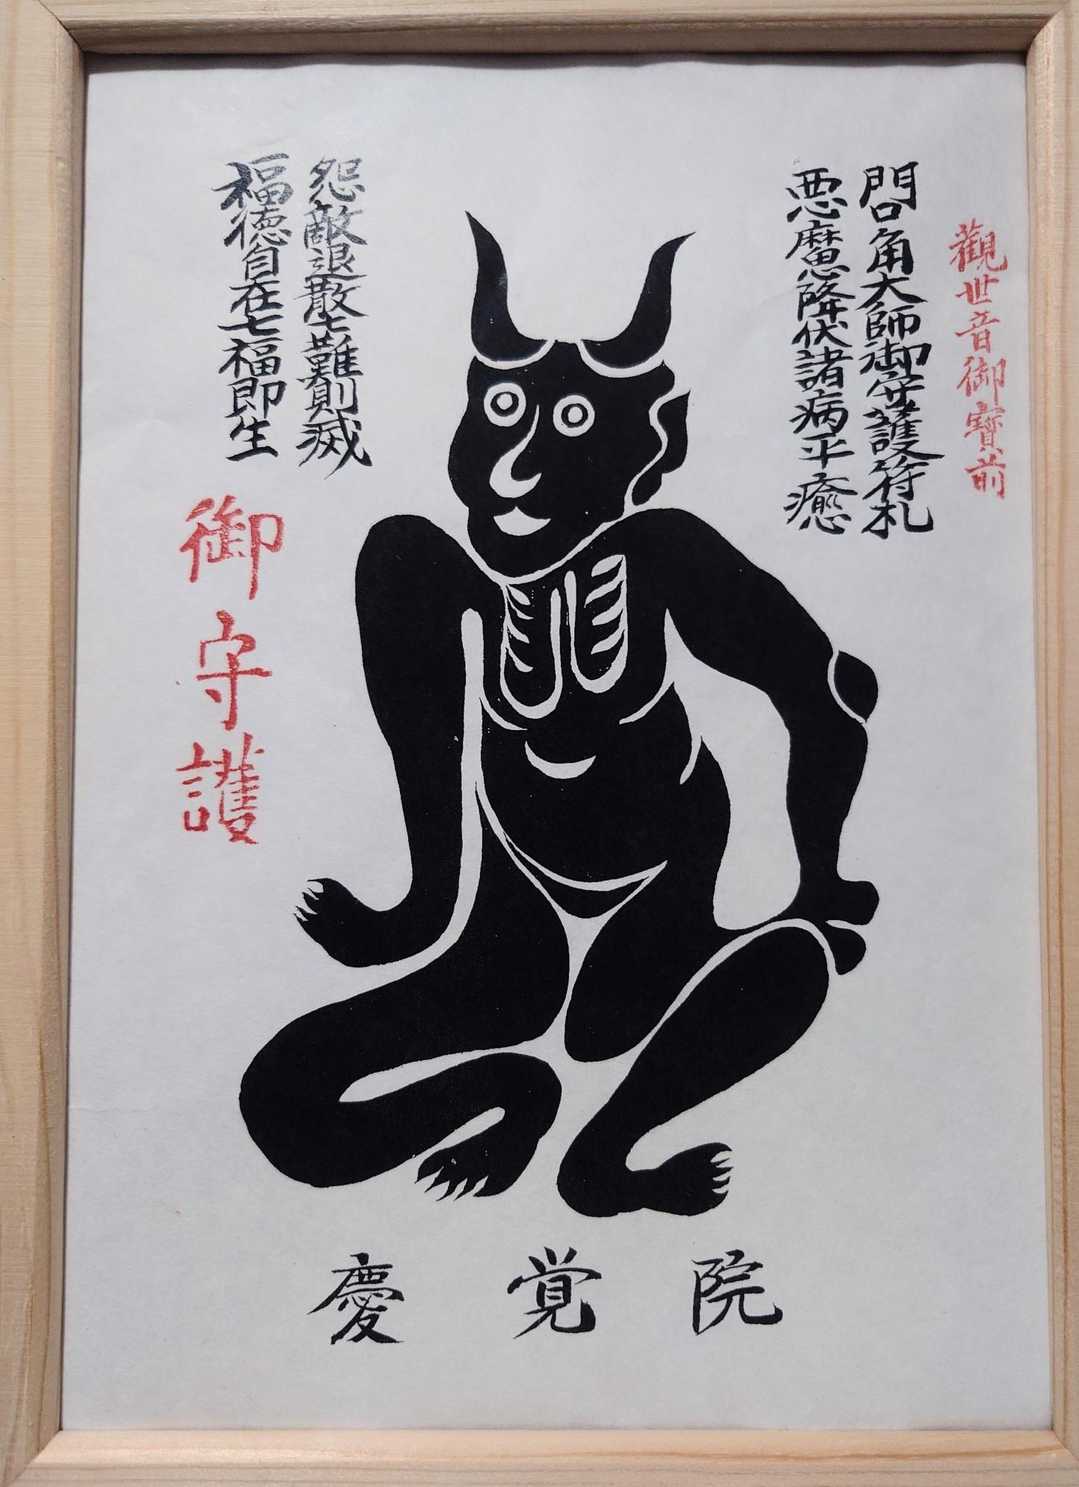 觀世音御寶前
門口角大師御守護符札
悪魔降伏諸病平癒
怨敵退散七難則滅
福徳自在七福即生
御守護
慶覚院